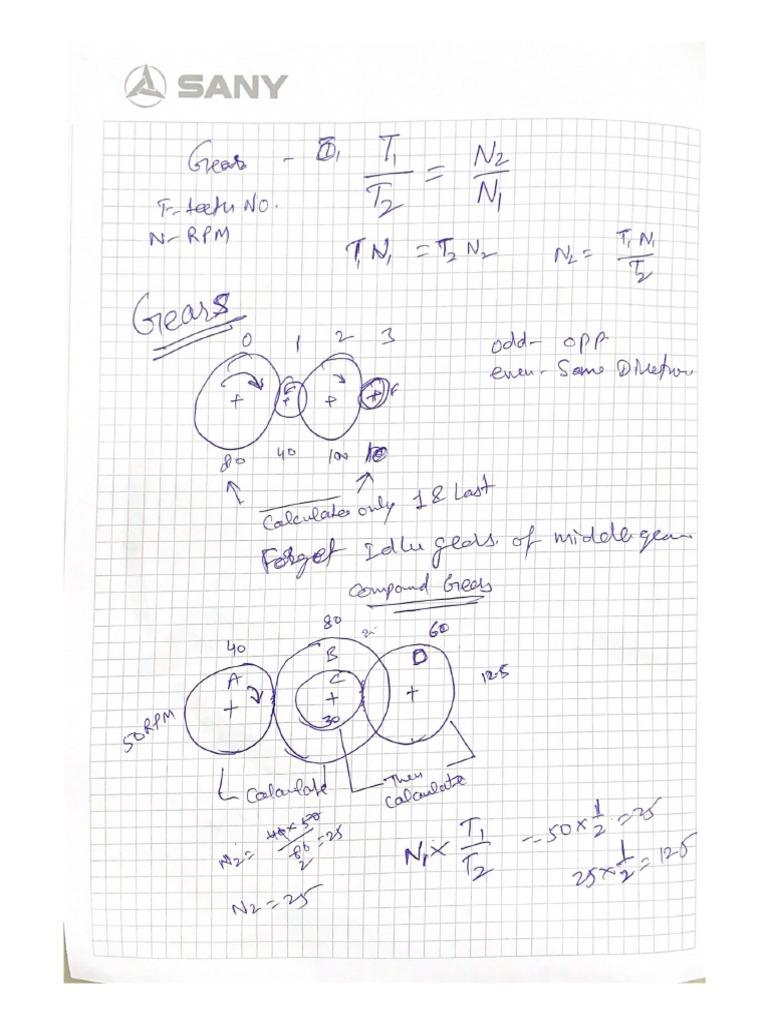 SANY
Gears - T₁/T₂ = N₂/N₁
T-teeth No.
N-RPM
T₁N₁ = T₂N₂
N₂ = T₁N₁/T₂
Gears
0 1 2 3
odd- opp
even- Same Direction
80 40 100
Calculates only 1 & Last
Forget Idle gears of middle gear
Compound Gears
40 80 60
A B C D
30
50 RPM
125
Calculate
Then
Calculate
N₂ = 40×50/80 = 25
2
N₁ × T₁/T₂ = 50 × 1/2 = 25
25 × 1/2 = 125
N₂ = 25